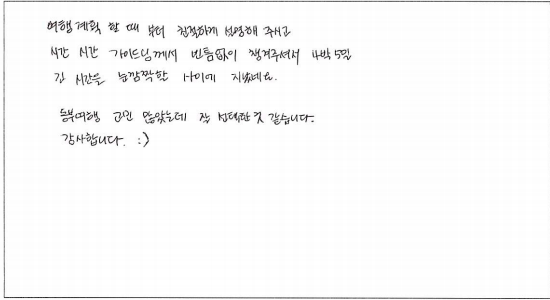 여행계획 할 때 부터 친절하게 설명해 주시고
시간 시간 가이드님께서 빈틈없이 챙겨주셔서 4박 5일
긴 시간을 눈깜짝할 사이에 지났네요.
동부여행 고민 많았는데 잘 선택한 것 같습니다.
감사합니다. :)